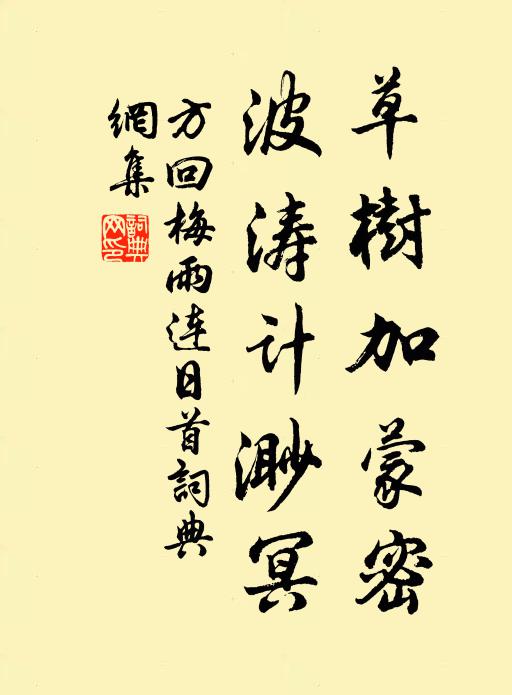 草樹加蒙密
波濤計渺冥
方回梅雨連日首詞典
網集
詞典
网印